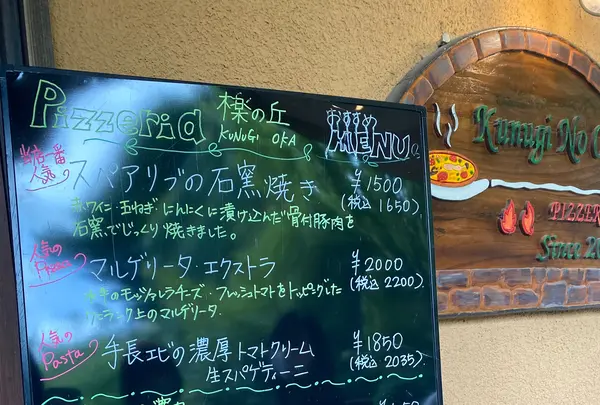 Pizzeria 櫟の丘 おすすめ
KUNUGI OKA MENU
当店一番人気
スペアリブの石窯焼き ¥1500
赤ワイン・玉ねぎ・にんにくに漬け込んだ骨付豚肉を (税込 1650)
石窯でじっくり焼きました。
人気の Pizza
マルゲリータ・エクストラ ¥2000
水牛のモッツァレラチーズ・フレッシュトマトをトッピングした (税込 2200)
ワンランク上のマルゲリータ
人気の Pasta
手長エビの濃厚トマトクリーム ¥1850
生スパゲティーニ (税込 2035)
Kunugi No
PIZZER
Since 20